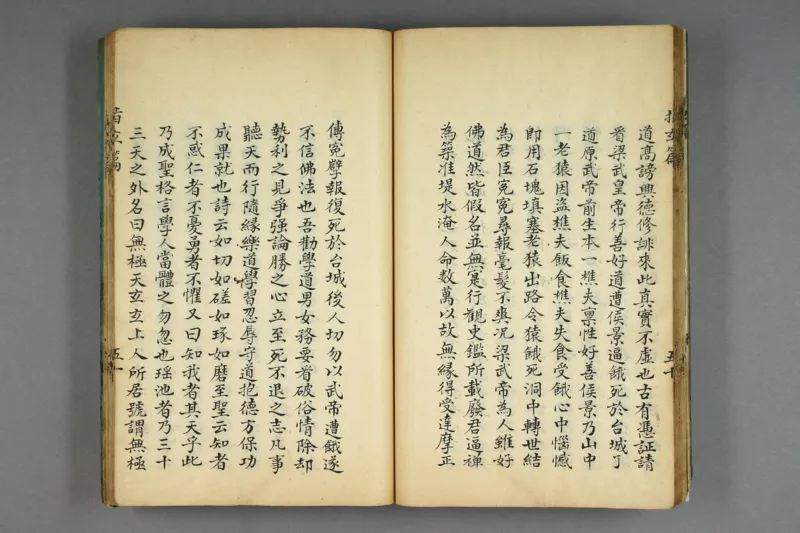 道高謗興德修誹來此真實不虛也古有憑証請
看梁武皇帝行善好道遭侯景逼餓死於台城了
道原武帝前生本一樵夫禀性好善侯景乃山中
一老猿因盜樵夫飯食樵夫失食受餓心中惱憾
即用石塊填塞老猿出路令猿餓死洞中轉世結
為君臣冤冤尋報毫髮不爽况梁武帝為人雖好
佛道然皆假名並無是行觀史鑑所載廢君逼禪
為築淮堤水淹人命数萬以故無緣得受達摩正
傳冤孽報復死於台城後人切勿以武帝遭餓遂
不信佛法也吾勸學道男女務要看破俗情除却
勢利之見爭强論勝之心立至死不退之志凡事
聽天而行隨緣樂道學習忍辱守道抱德方保功
成果就也詩云如切如磋如琢如磨至聖云知者
不惑仁者不憂勇者不懼又曰知我者其天乎此
乃成聖格言學人當體之勿忽也瑶池者乃三十
三天之外名曰無極天玄玄上人所居號謂無極
指玄篇
五十